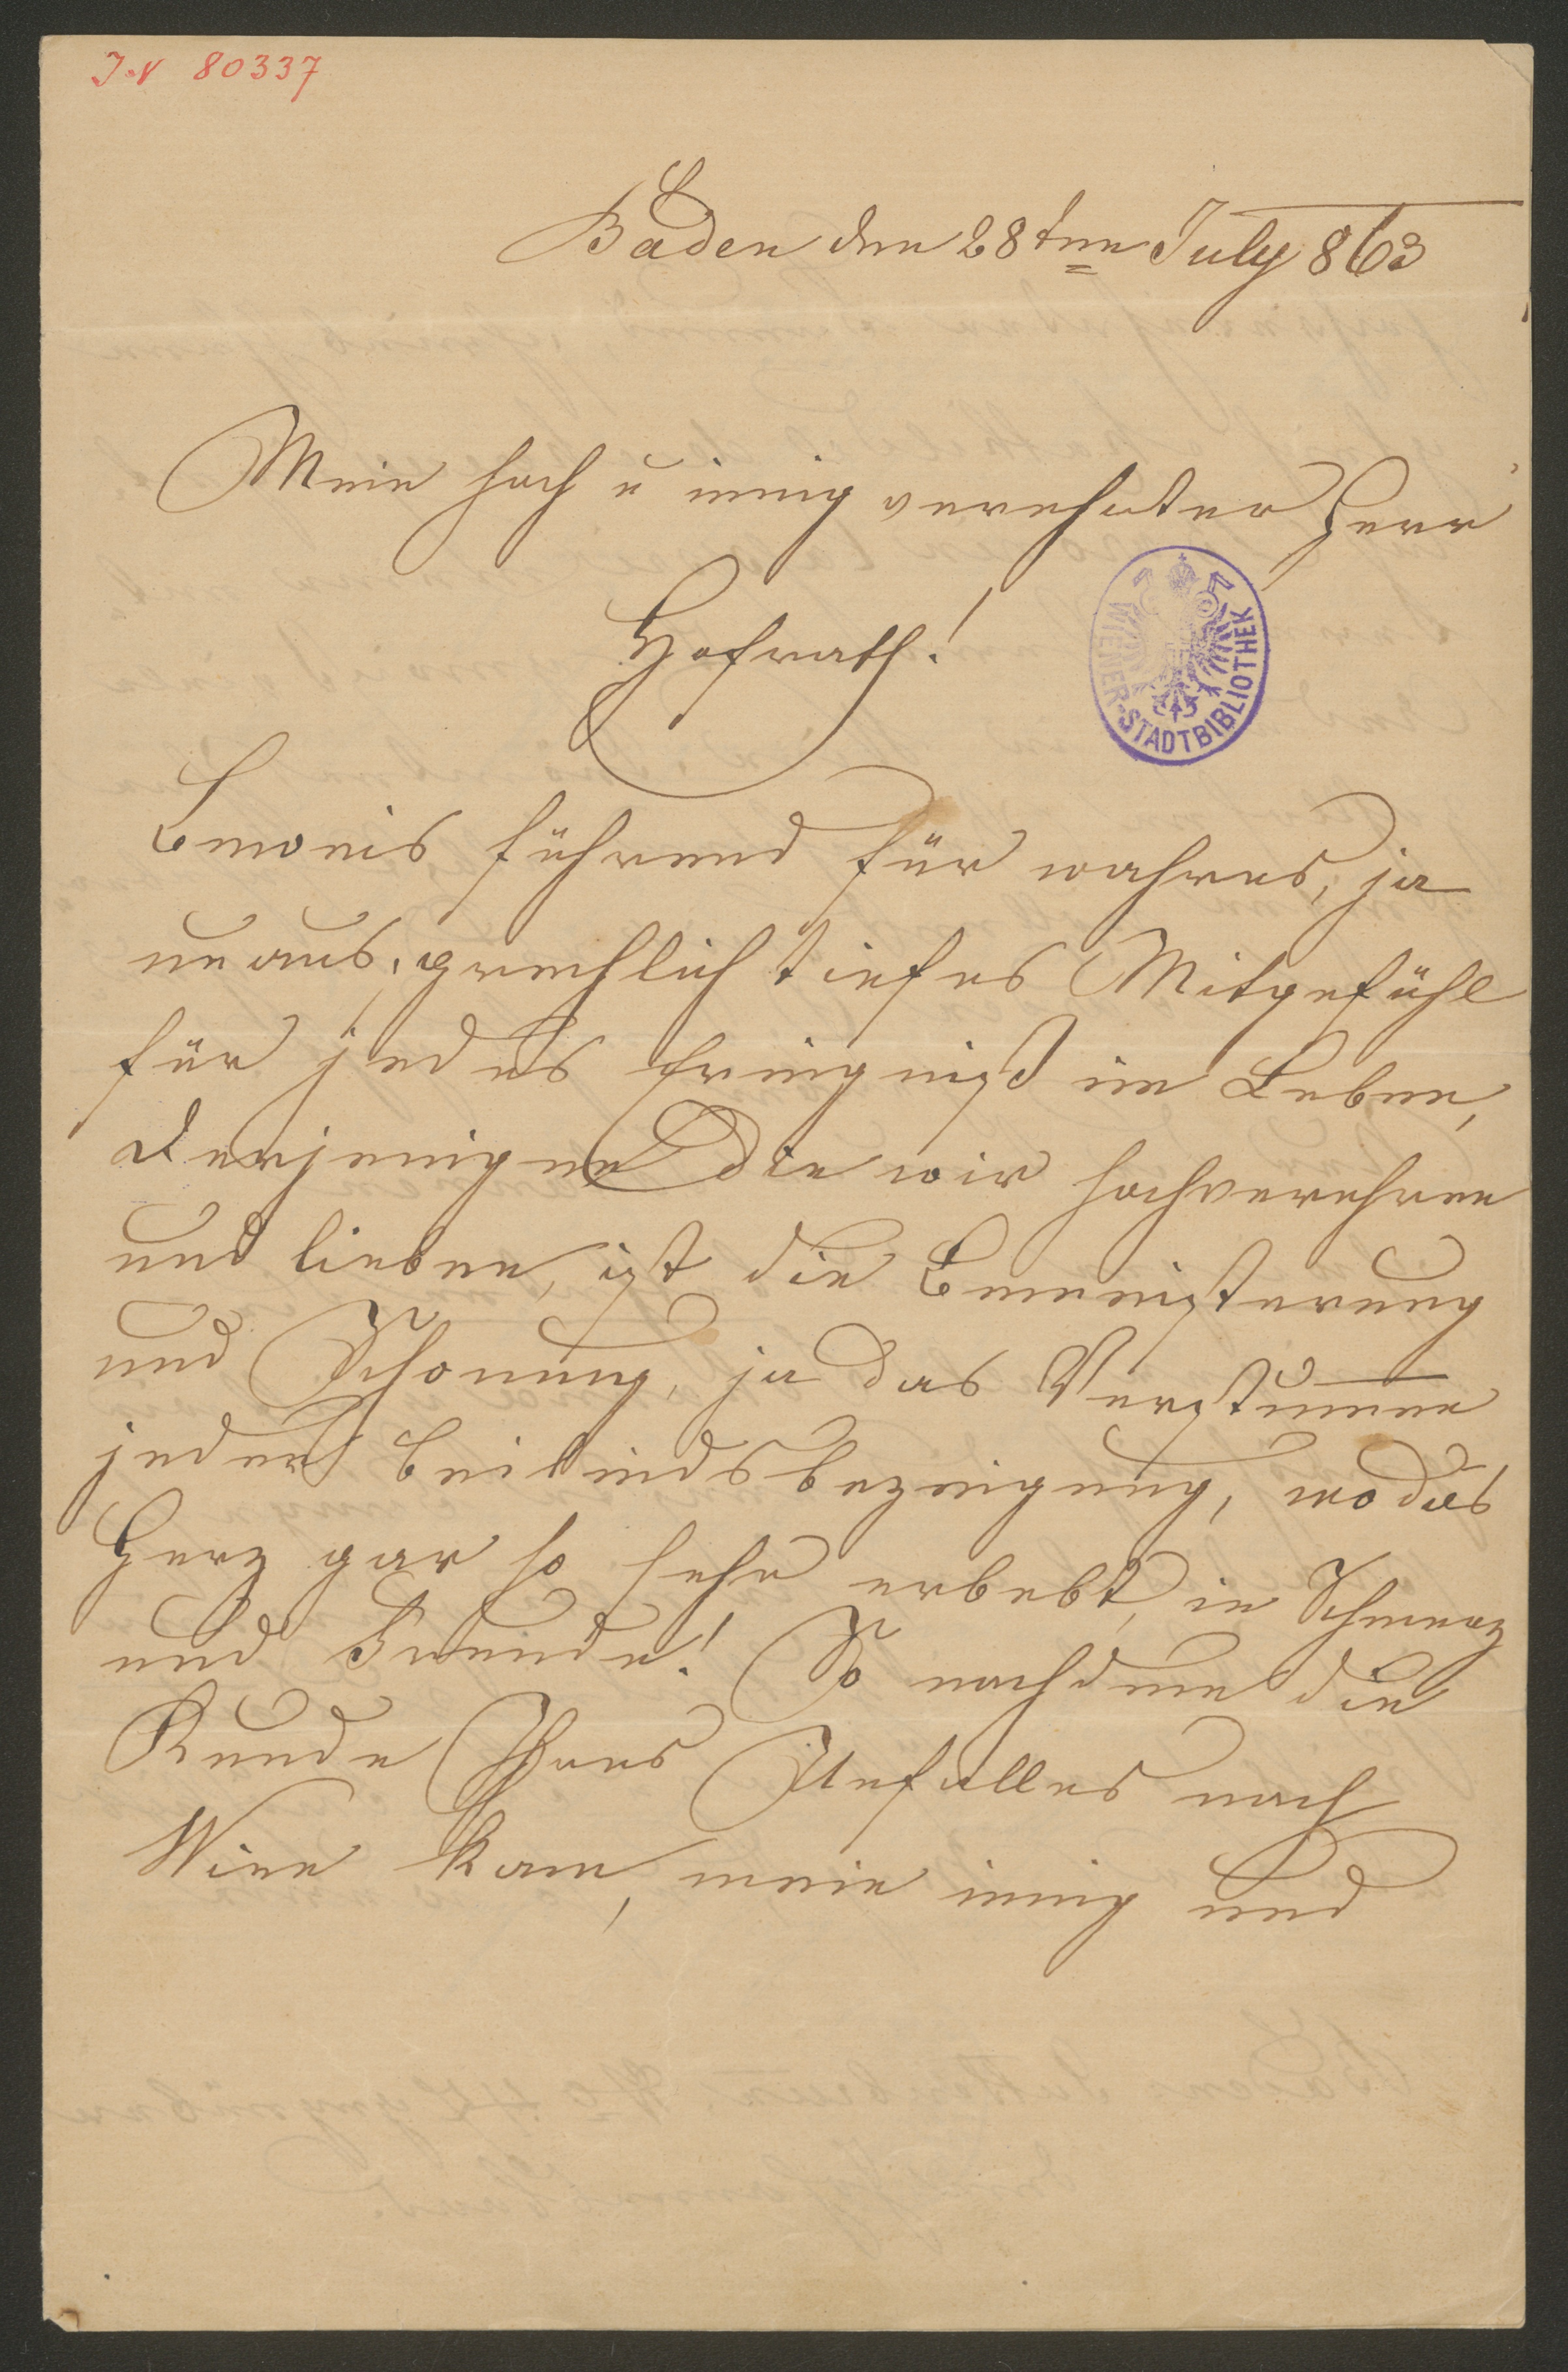 I.N 80337
Baden den 28ten July 863
Mein hoch u innig verehrter Herr
Hofrath!
WIENER-STADTBIBLIOTHEK
Beweis führend für wahres, ja
unaussprechlich tiefes Mitgefühl
für jedes Ereigniß im Leben,
derjenigen die wir hochverehren
und lieben, ist die Bemeisterung
und Schonung, ja das Verstummen
jeder Beileidsbezeigung, wo das
Herz gar so sehr erbebt, in Schmerz
und Freude! So nachdem die
Kunde Ihres Unfalles nach
Wien kam, mein innig und